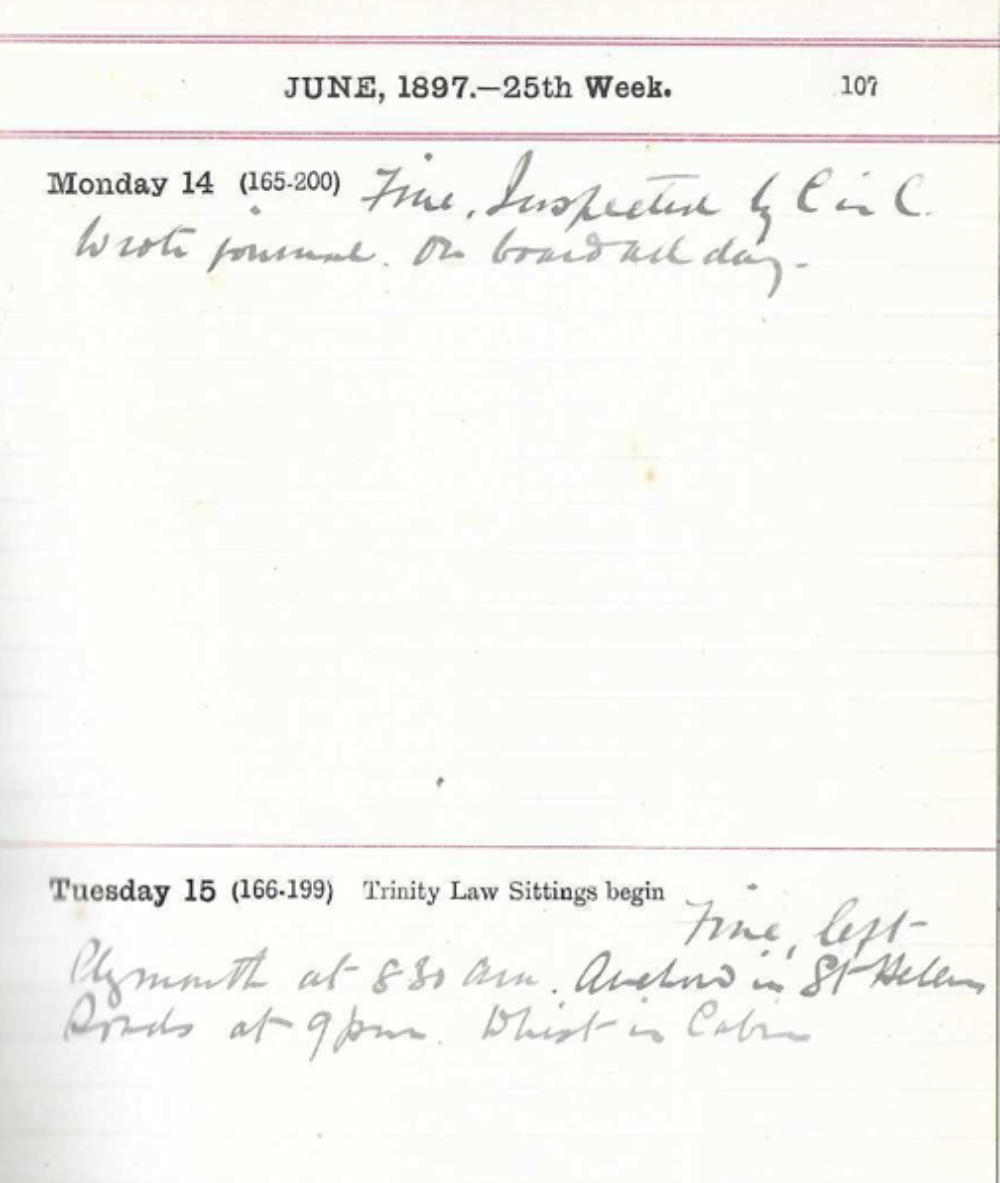 JUNE, 1897.—25th Week. 107
Monday 14 (165-200) Fine, Inspected by C in C.
Wrote journal. On board all day.
Tuesday 15 (166-199) Trinity Law Sittings begin
Fine, left
Plymouth at 8 30 am. Anchored in St Helens
Roads at 9 pm. Whist in Cabin